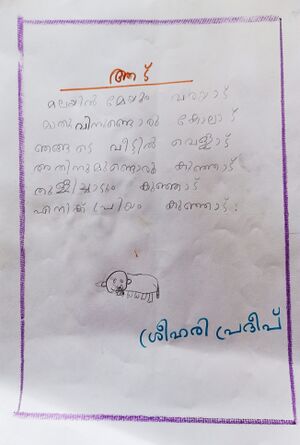 ആട്
മലയിൽ മേയും വരയാട്
മാനുവിനുണ്ടൊരു കോലാട്
ഞങ്ങടെ വീട്ടിൽ വെള്ളാട്
അതിനുമുണ്ടൊരു കുഞ്ഞാട്
തുള്ളിച്ചാടും കുഞ്ഞാട്
എനിക്ക് പ്രിയം കുഞ്ഞാട്.
ശ്രീഹരി പ്രദീപ്